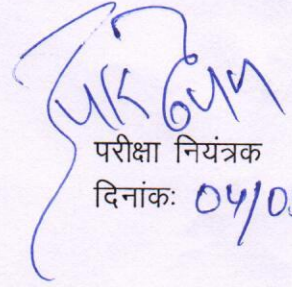 परीक्षा नियंत्रक
दिनांकः 04/0